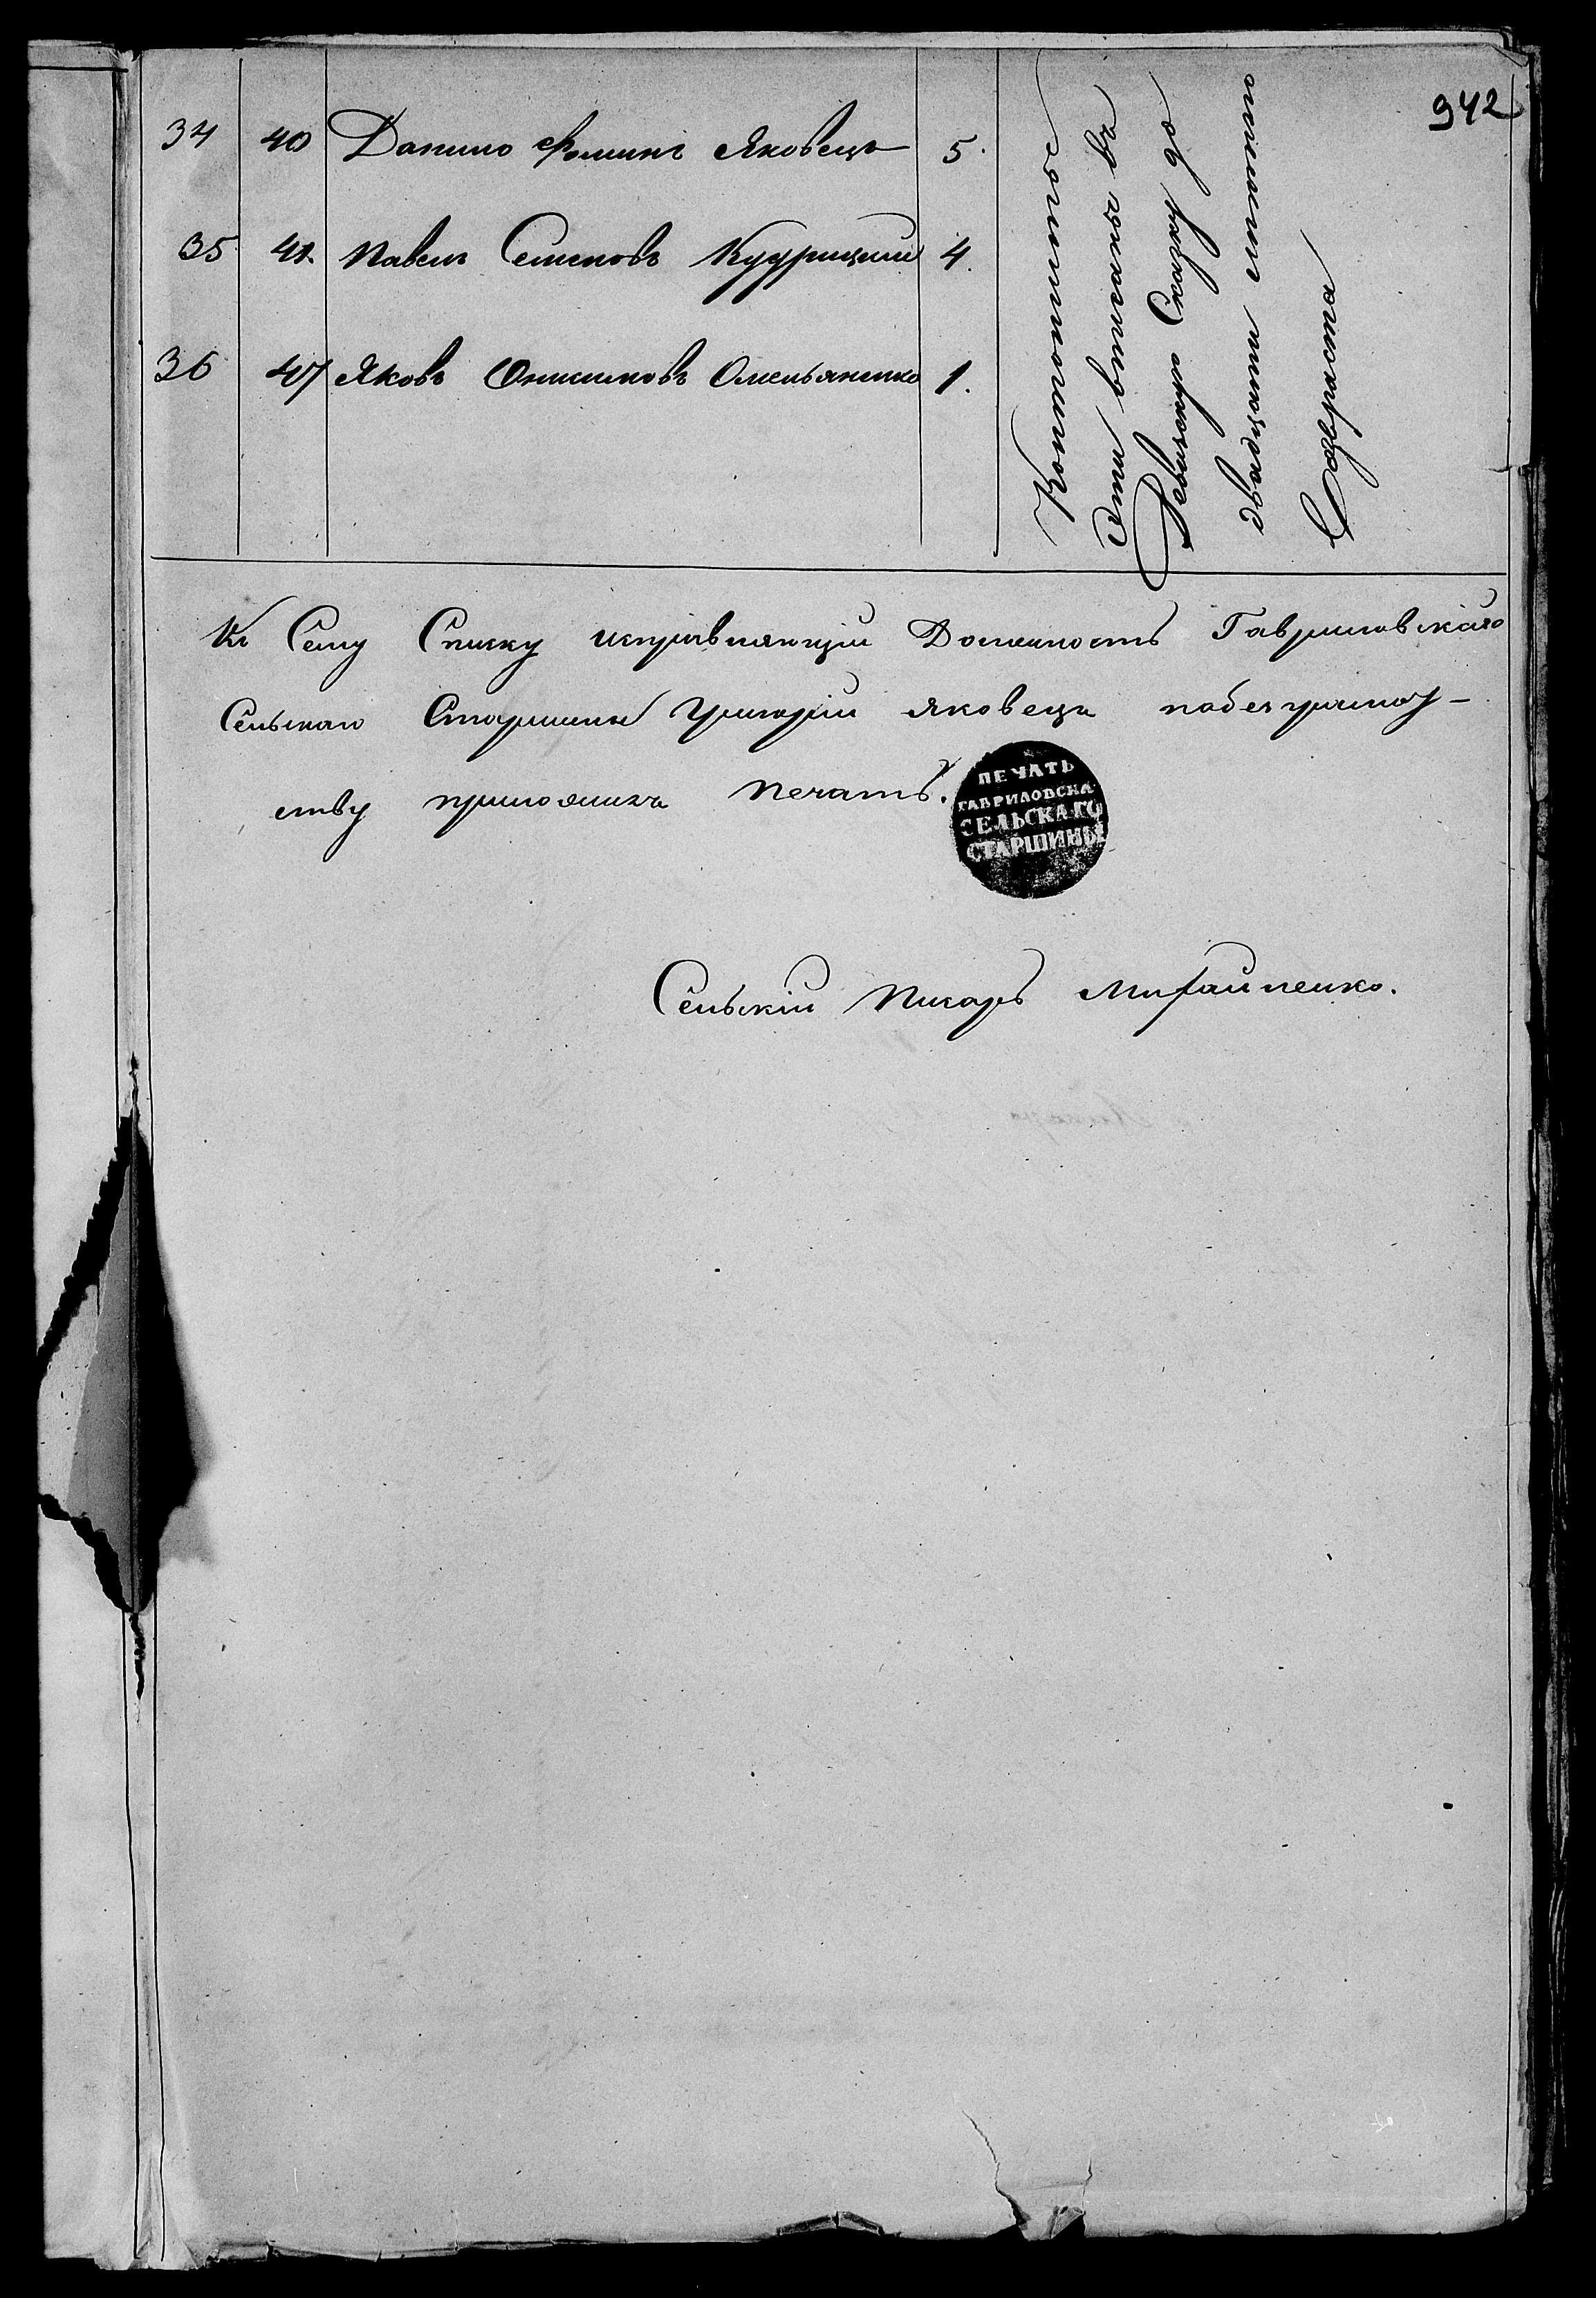 942
34 40 Данило Фоминъ Яковецъ 5.
35 41. Павелъ Семеновъ Кудрицкий 4.
36 47 Яковъ Онисимовъ Омельяненко 1.
вписаны въ
Ревизскую Сказку до
двадцати летнего
возраста
Къ Сему Списку исправляющий Должность Гавриловскаго
Сельскаго Старшины Григорий Яковецъ побезграмот-
ству приложилъ печать.
ПЕЧАТЬ
ГАВРИЛОВСКА
СЕЛЬСКАГО
СТАРШИНЫ
Сельскій Писарь Михайленко.